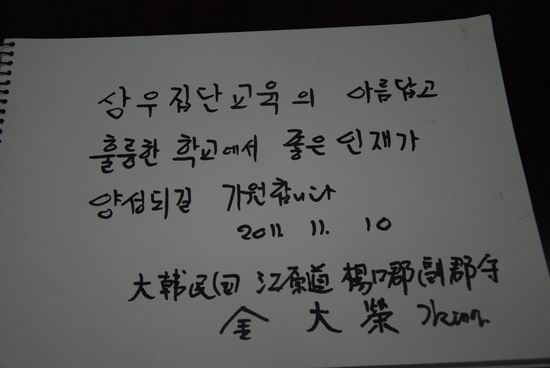 상우집단교육의 아름답고
훌륭한 학교에서 좋은 인재가
양성되길 기원합니다
2011. 11. 10
大韓民国 江原道 楊口郡副郡守
金大榮